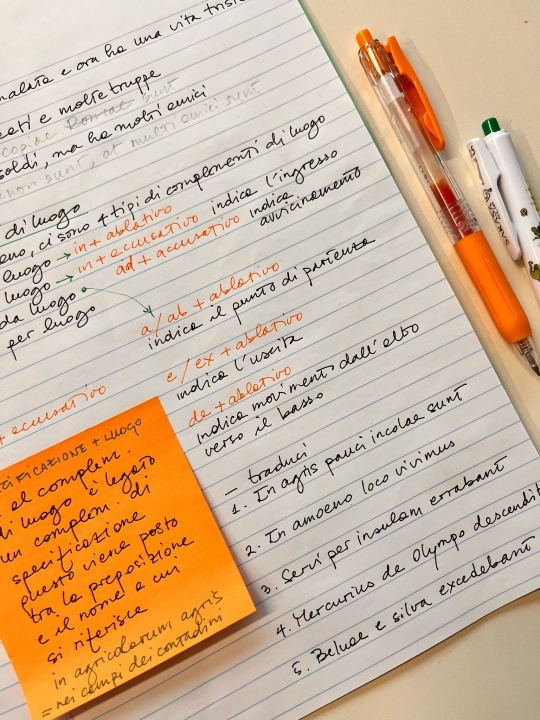 malata e ora ha una vita triste
e molte truppe
copiae Romae sunt
soldi, ma ha molti amici
non sunt, at multi amici sunt
di luogo
ci sono 4 tipi di complementi di luogo
luogo → in + ablativo
luogo → in + accusativo indica l'ingresso
ad + accusativo indica avvicinamento
da luogo
per luogo
a/ab + ablativo
indica il punto di partenza
e/ex + ablativo
indica l'uscita
de + ablativo
indica movimento dall'alto
verso il basso
+ accusativo
– traduci
1. In agris pauci incolae sunt
2. In amoeno loco vivimus
3. Servi per insulam errabant
4. Mercurius de Olympo descendit
5. Beluae e silva excedebant
CIFICAZIONE + LUOGO
al complem.
di luogo è legato
un complem. di
specificazione
questo viene posto
tra la preposizione
e il nome a cui
si riferisce
in agricolarum agris
= nei campi dei contadini